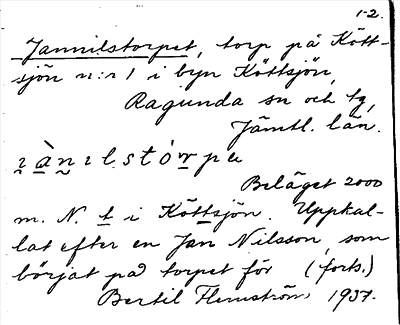 1-2.
Jannilstorpet, torp på Kött-
sjön n:r 1 i byn Köttsjön,
Ragunda sn och tg,
Jämtl. län.
ɪ̯ànɪlstórpe
Beläget 2000
m. N. t i Köttsjön. Uppkal-
lat efter en Jan Nilsson, som
börjat på torpet för (forts.)
Bertil Flemström 1937.